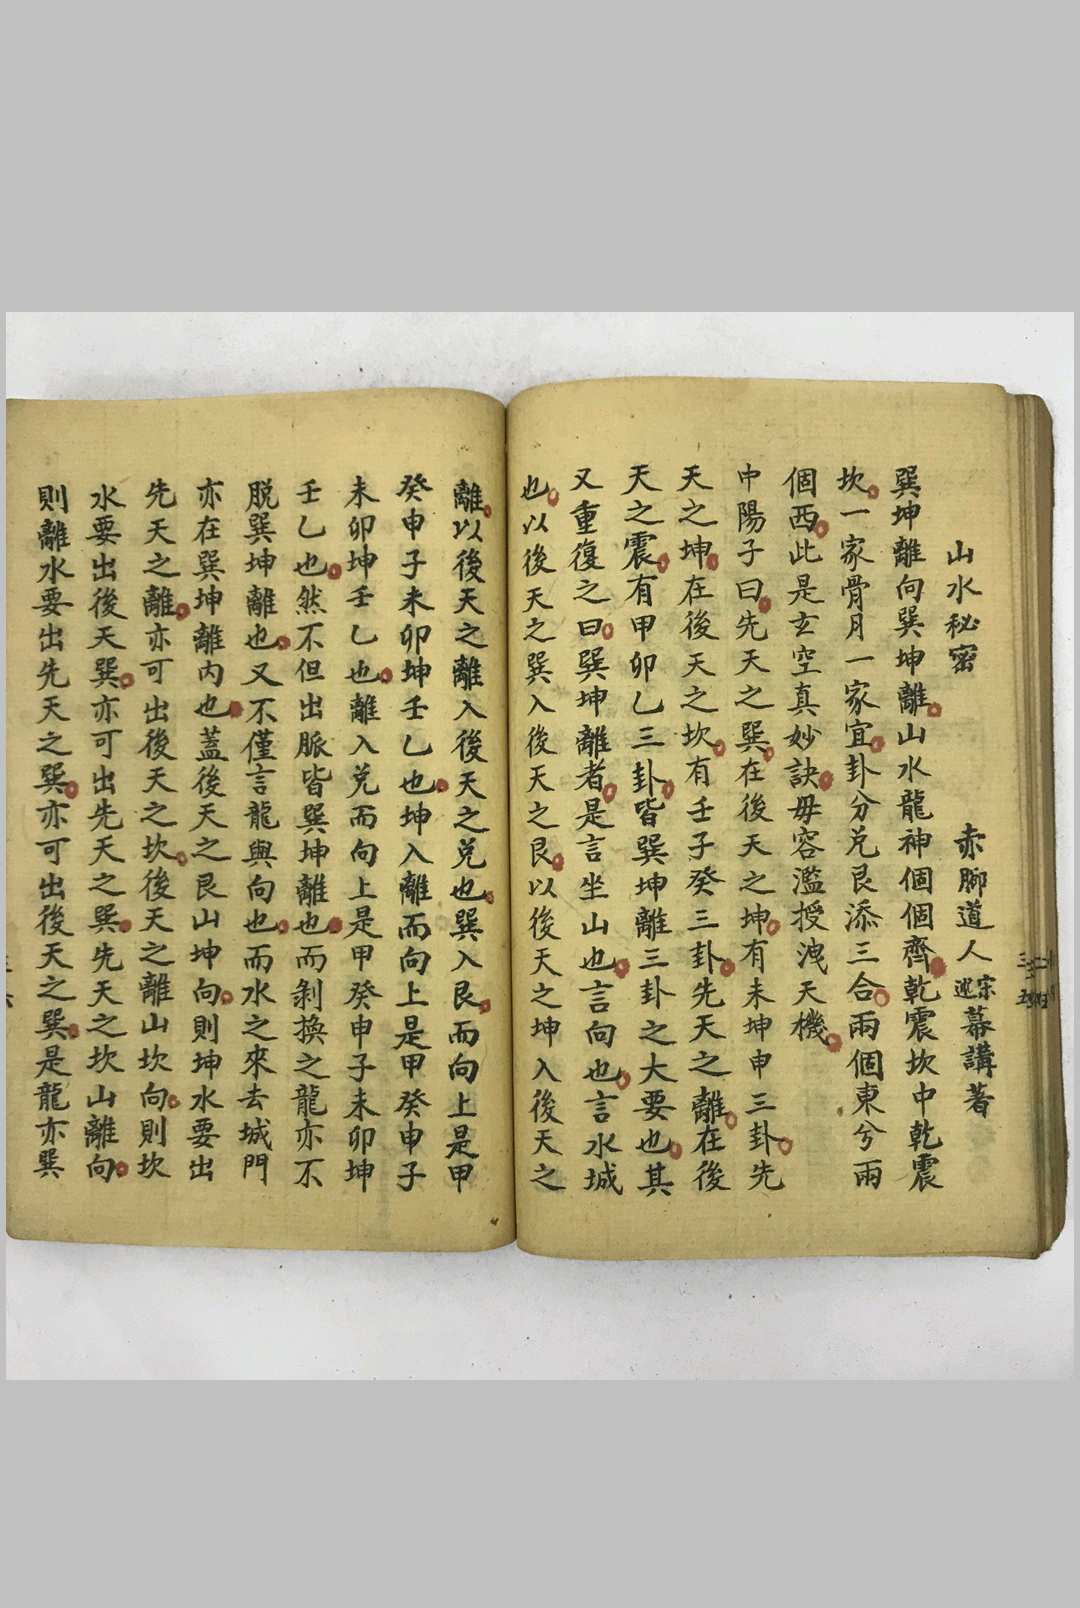 山水秘密
赤腳道人 宋 幕講著
巽坤離向巽坤離山水龍神個個齊乾震坎中乾震
坎一家骨月一家宜卦分兑艮添三合兩個東兮兩
個西此是玄空真妙訣毋容濫授洩天機
中陽子曰先天之巽在後天之坤有未坤申三卦先
天之坤在後天之坎有壬子癸三卦先天之離在後
天之震有甲卯乙三卦皆巽坤離三卦之大要也其
又重復之曰巽坤離者是言坐山也言向也言水城
也以後天之巽入後天之艮以後天之坤入後天之
離以後天之離入後天之兑也巽入艮而向上是甲
癸申子未卯坤壬乙也坤入離而向上是甲癸申子
未卯坤壬乙也離入兑而向上是甲癸申子未卯坤
壬乙也然不但出脈皆巽坤離也而剝換之龍亦不
脱巽坤離也又不僅言龍與向也而水之來去城門
亦在巽坤離内也蓋後天之艮山坤向則坤水要出
先天之離亦可出後天之坎後天之離山坎向則坎
水要出後天巽亦可出先天之巽先天之坎山離向
則離水要出先天之巽亦可出後天之巽是龍亦巽